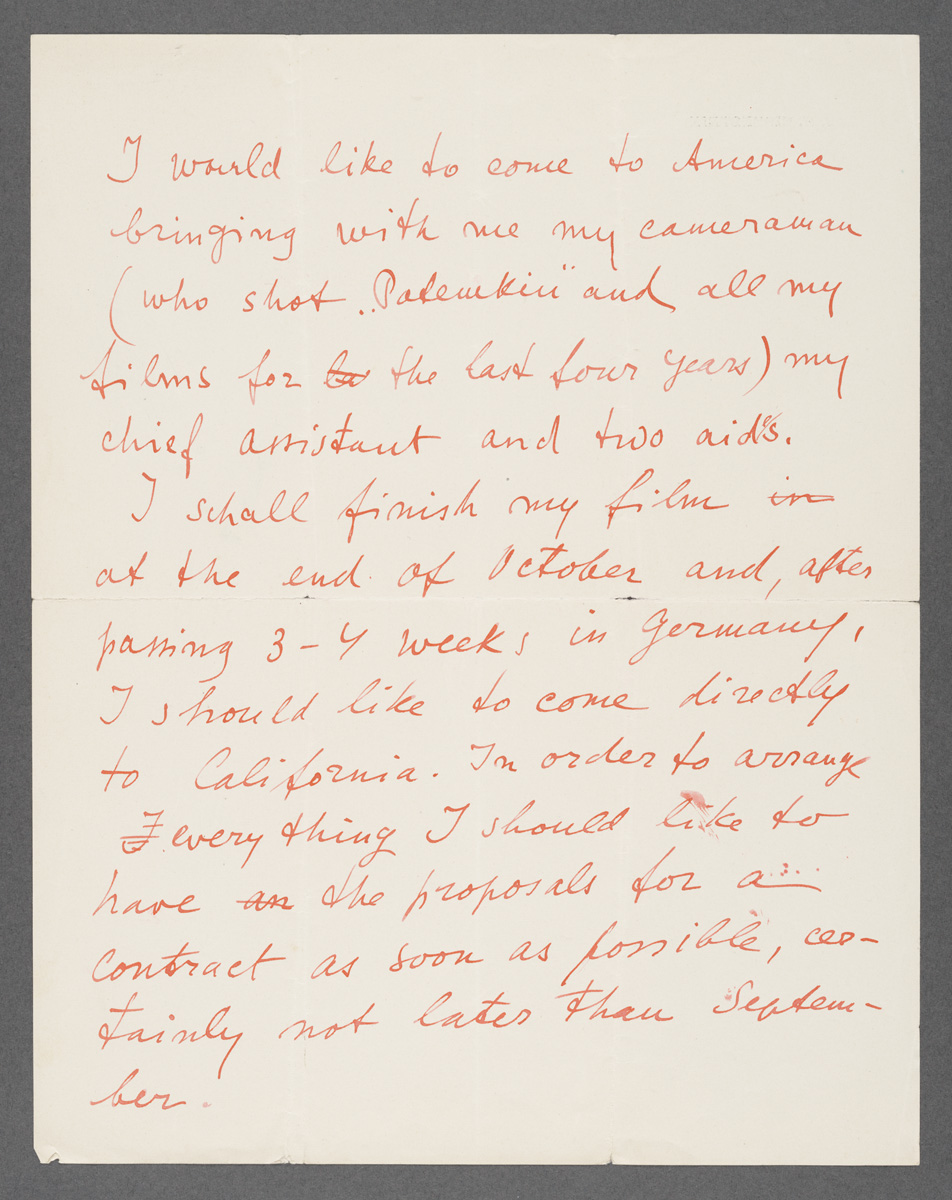 I would like to come to America
bringing with me my cameraman
(who shot „Potemkin" and all my
films for la the last four years) my
chief assistant and two aids.
I schall finish my film in
at the end of October and, after
passing 3-4 weeks in Germany,
I should like to come directly
to California. In order to arrange
I everything I should like to
have an the proposals for a
contract as soon as possible, cer-
tainly not later than Septem-
ber.